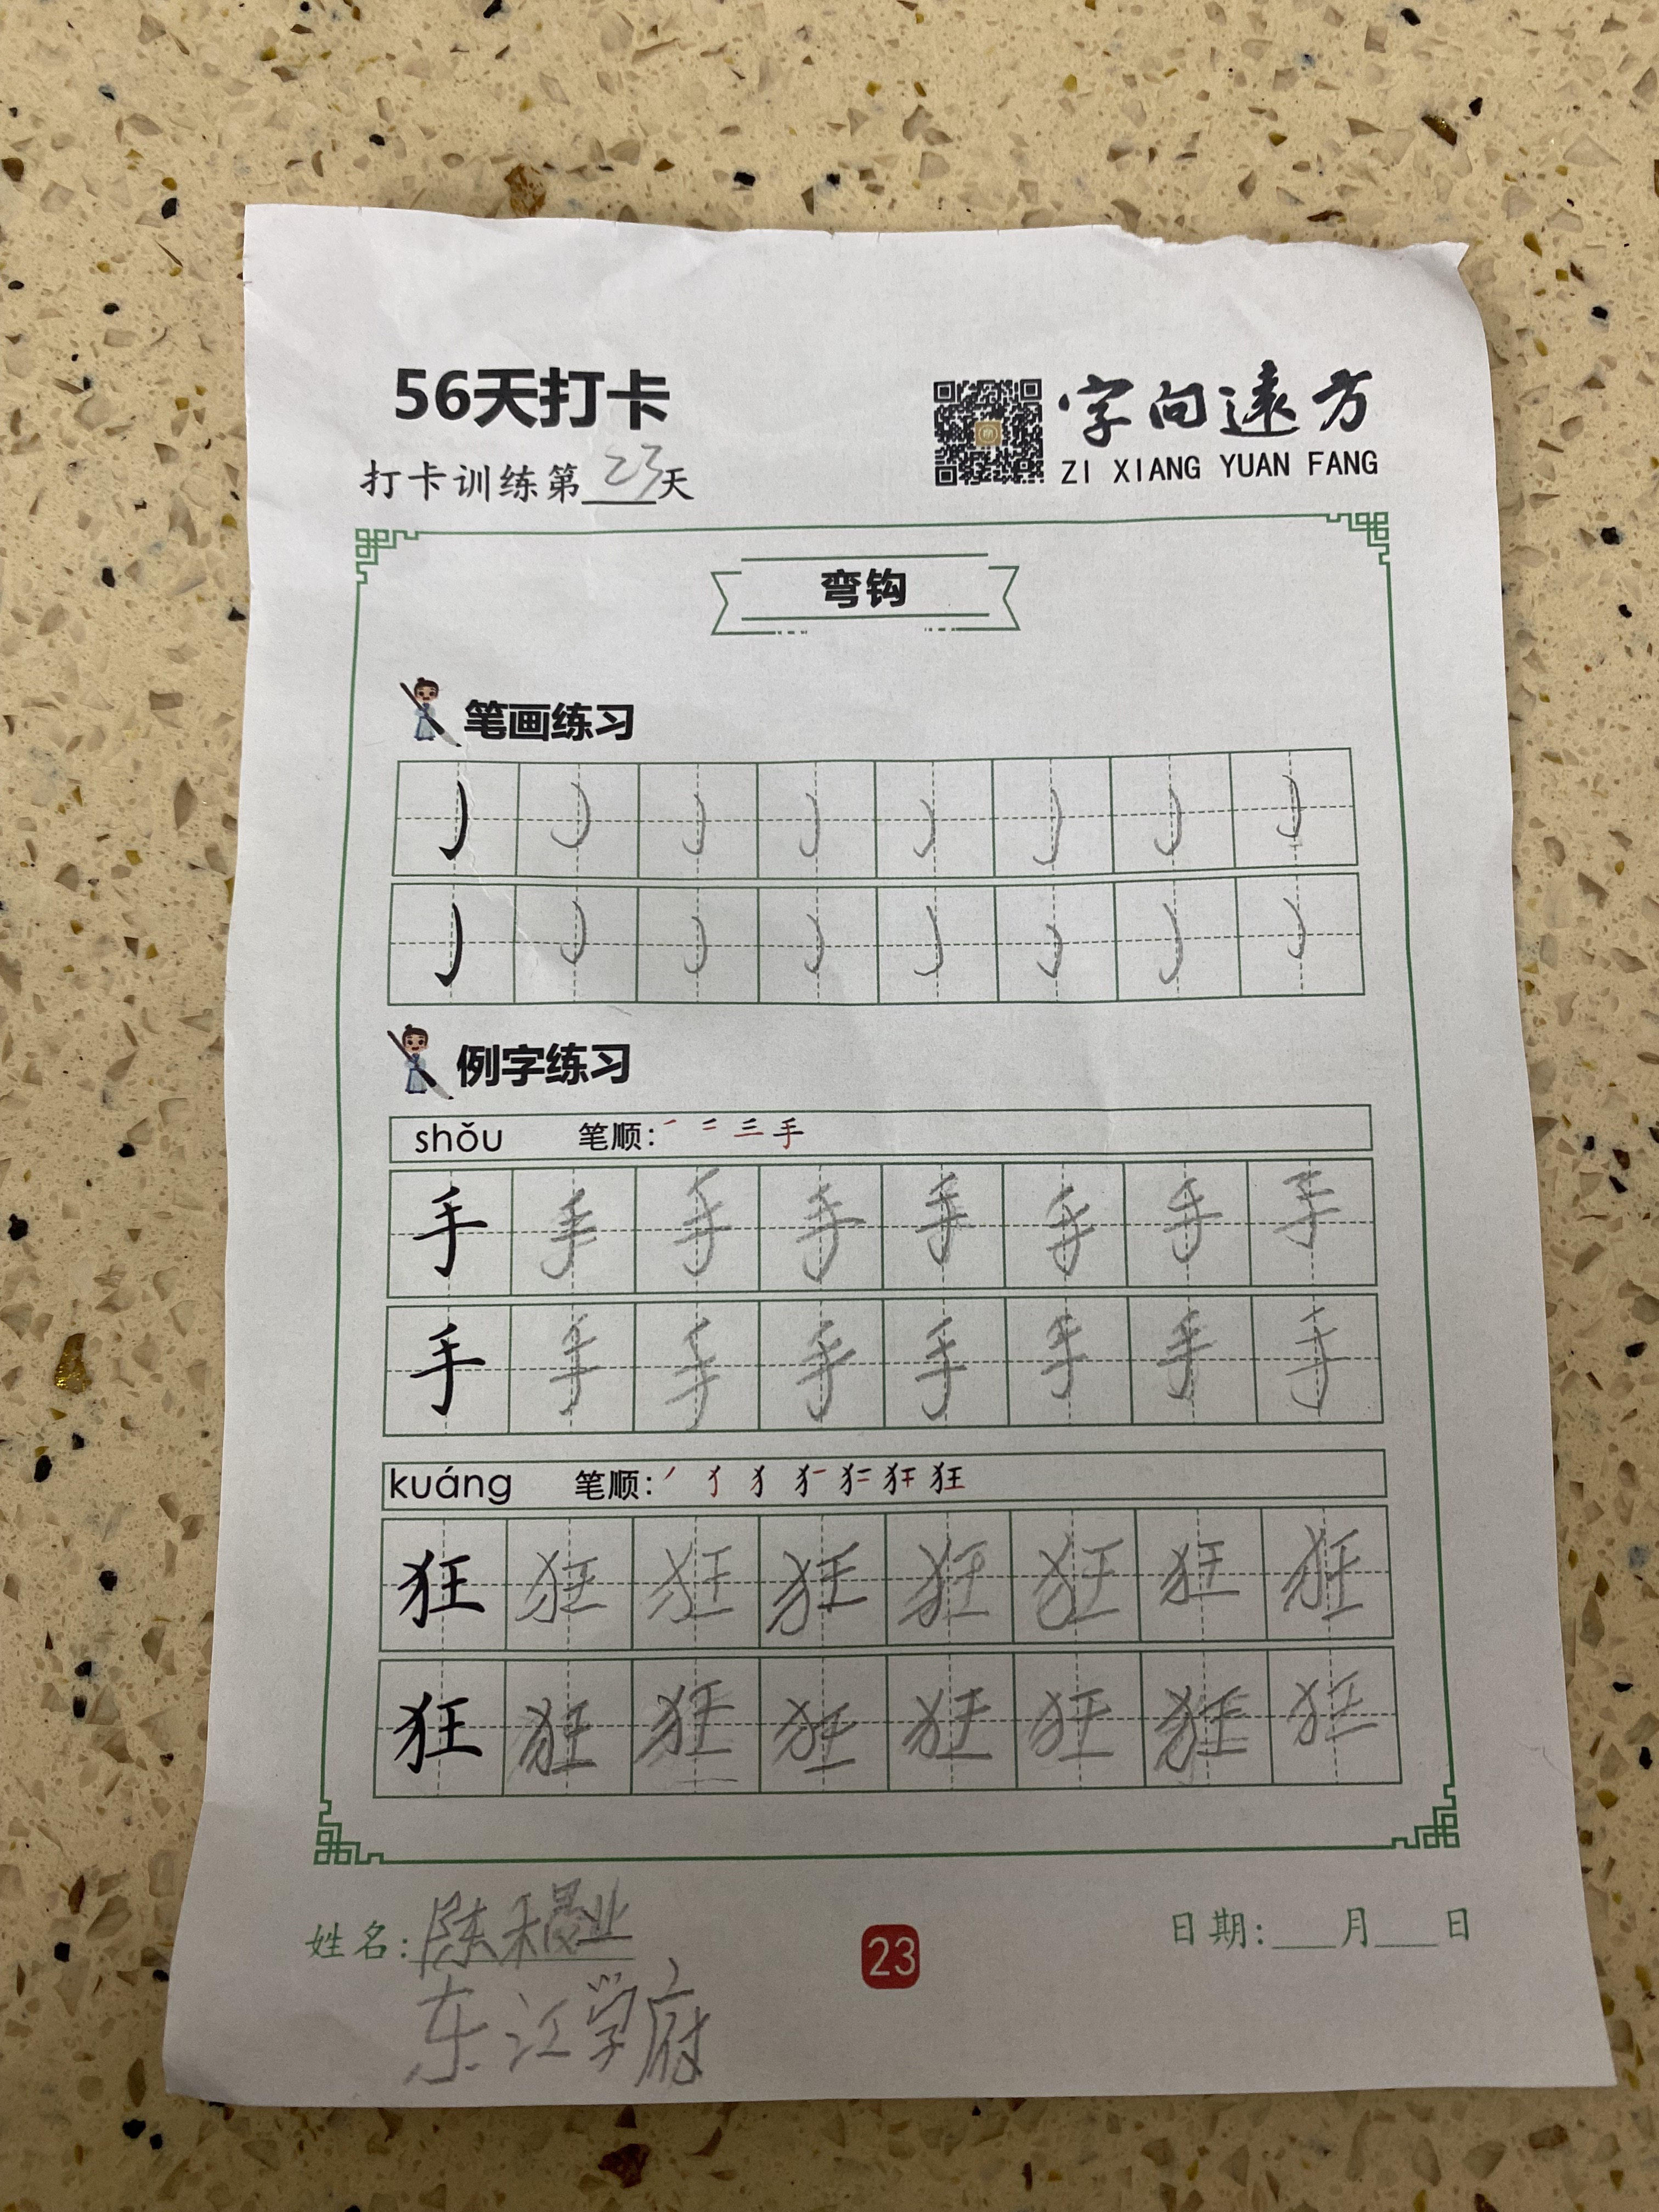 56天打卡
字向遠方
ZI XIANG YUAN FANG
打卡训练第23天
弯钩
笔画练习
例字练习
shǒu 笔顺: 手
手 手 手 手 手 手 手 手
手 手 手 手 手 手 手 手
kuáng 笔顺: 狂
狂 狂 狂 狂 狂 狂 狂 狂
狂 狂 狂 狂 狂 狂 狂 狂
姓名: 陈禾晟业
23
日期:___月___日
东江学府